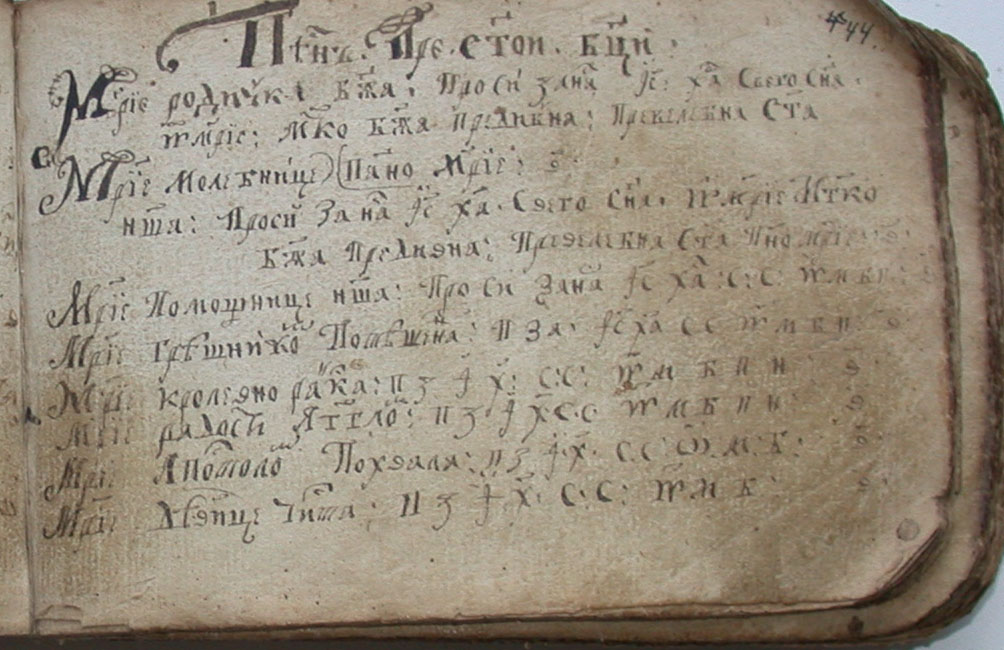 44.
Пѣнъ. Пре. стои. бци.
Мріе родичка бжа. Проси за на Іс. ха своего сна.
ѿ мріе: Мко бжа предивна: превелебна ста
Мріе молебнице) (Пано мріе:
нша: Проси за на Іс ха. своего сна. ѿ мріе Мтко
бжа предивна: превелебна ста пно мріе:
Мріе помощнице нша: Проси за на Іс ха: с: с: ѿ м б п:
Мріе грѣшнико потѣшена: п за. Іс ха с с ѿ м б п:
Мріе кролевно райка: п з І х: с: с: ѿ м б п п
Мріе радости Аггло: п з І х с с ѿ м б п п:
Мріе Апостоло Похвала: п з І. х. с с ѿ. м. б.
Мріе Двѣице чиста: п з І х. с. с: ѿ м б